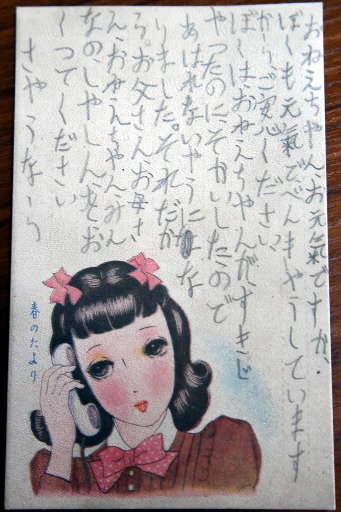 おねえちやん、お元氣ですか、
ぼくも元氣でべんきやうしています
からご安心ください、
ぼくはおねえちやんがすきじ
やつたのにそかいしたので
あはれないやうにな
りました。それだか
ら、お父さん、お母さ
ん、おねえちやん、みん
なの、しやしんをお
くつてください
さやうなら
春のたより